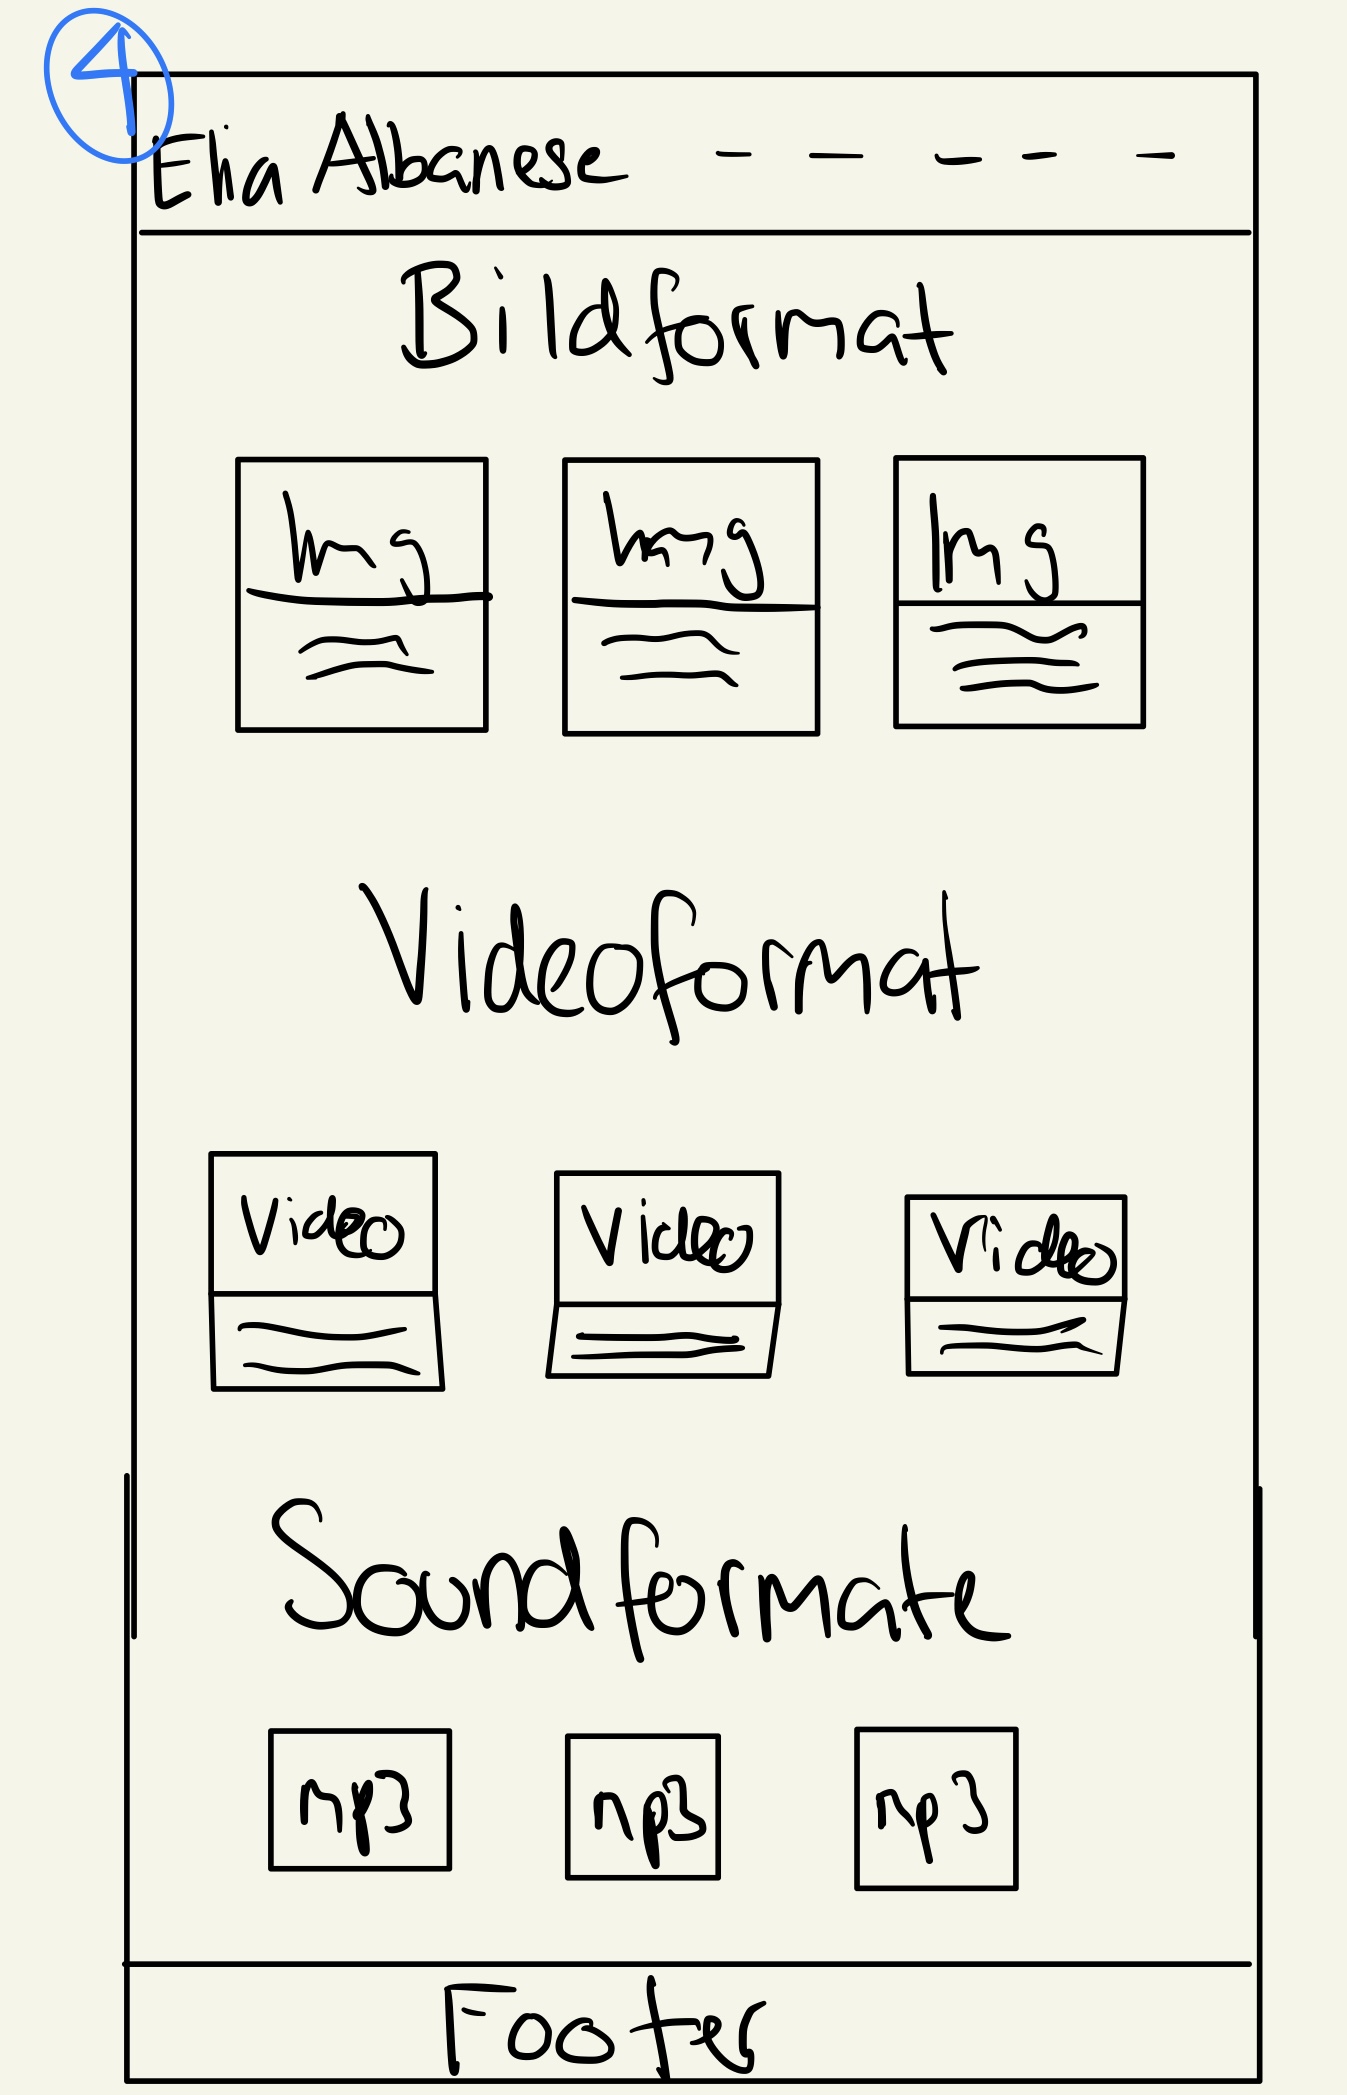 4
Elia Albanese
Bildformat
Img Img Img
Videoformat
Video Video Video
Soundformate
mp3 mp3 mp3
Footer